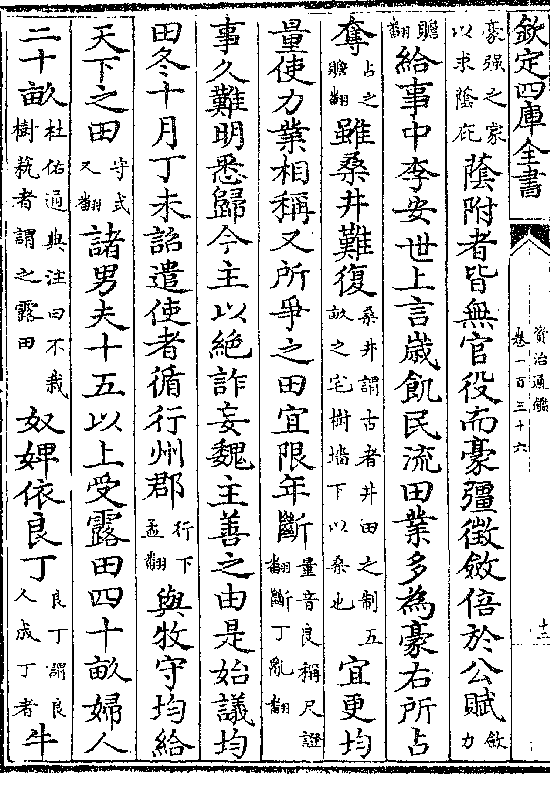 欽定四庫全書
資治通鑑
卷一百三十六
十二
豪强之家以求蔭庇蔭附者皆無官役而豪彊徵斂倍於公賦斂力
贍翻給事中李安世上言歲飢民流田業多為豪右所占
奪占之贍翻雖桑井難復桑井謂古者井田之制五畝之宅樹墻下以桑也宜更均
量使力業相稱又所爭之田宜限年斷量音良稱尺證翻斷丁亂翻
事久難明悉歸今主以絶詐妄魏主善之由是始議均
田冬十月丁未詔遣使者循行州郡行下孟翻與牧守均給
天下之田守式又翻諸男夫十五以上受露田四十畝婦人
二十畝杜佑通典注曰不栽樹蓺者謂之露田奴婢依良丁良丁謂良人成丁者牛